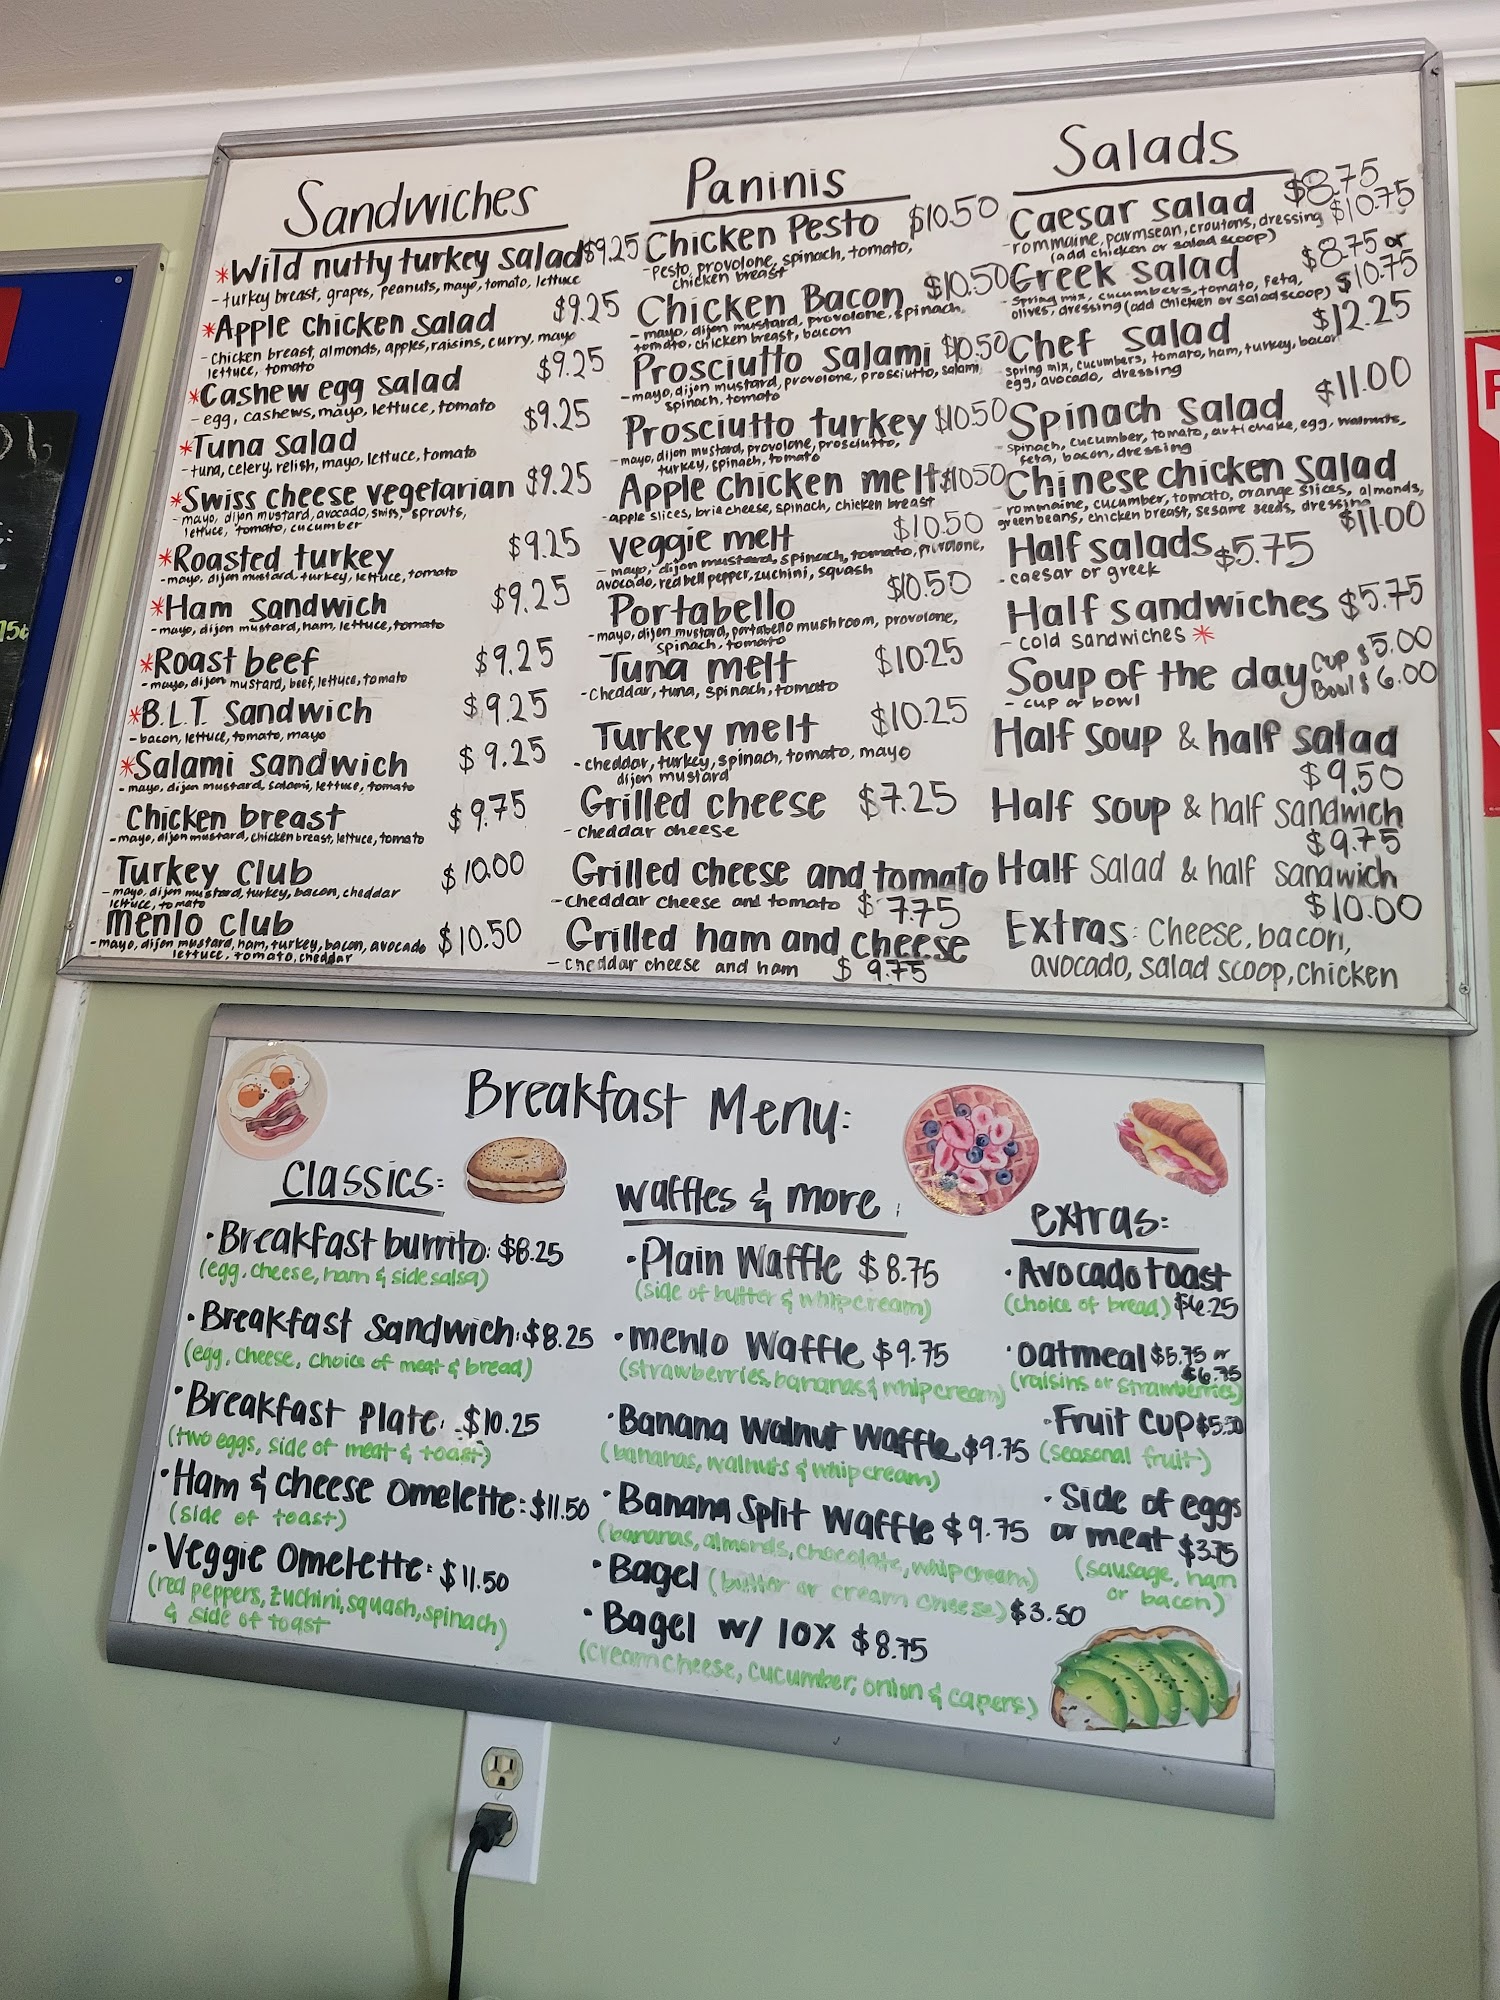 Sandwiches
*Wild nutty turkey salad $9.25
- turkey breast, grapes, peanuts, mayo, tomato, lettuce
*Apple chicken salad $9.25
- chicken breast, almonds, apples, raisins, curry, mayo
lettuce, tomato
*Cashew egg salad $9.25
- egg, cashews, mayo, lettuce, tomato
*Tuna salad $9.25
- tuna, celery, relish, mayo, lettuce, tomato
*Swiss cheese vegetarian $9.25
- mayo, dijon mustard, avocado, swiss, sprouts,
lettuce, tomato, cucumber
*Roasted turkey $9.25
- mayo, dijon mustard, turkey, lettuce, tomato
*Ham sandwich $9.25
- mayo, dijon mustard, ham, lettuce, tomato
*Roast beef $9.25
- mayo, dijon mustard, beef, lettuce, tomato
*B.L.T. sandwich $9.25
- bacon, lettuce, tomato, mayo
*Salami sandwich $9.25
- mayo, dijon mustard, salami, lettuce, tomato
Chicken breast $9.75
- mayo, dijon mustard, chicken breast, lettuce, tomato
Turkey club $10.00
- mayo, dijon mustard, turkey, bacon, cheddar
lettuce, tomato
menlo club $10.50
- mayo, dijon mustard, ham, turkey, bacon, avocado
lettuce, tomato, cheddar
Paninis
Chicken Pesto $10.50
- Pesto, provolone, spinach, tomato,
chicken breast
Chicken Bacon $10.50
- mayo, dijon mustard, provolone, spinach,
tomato, chicken breast, bacon
Prosciutto salami $10.50
- mayo, dijon mustard, provolone, prosciutto, salami,
spinach, tomato
Prosciutto turkey $10.50
- mayo, dijon mustard, provolone, prosciutto,
turkey, spinach, tomato
Apple chicken melt $10.50
- apple slices, brie cheese, spinach, chicken breast
veggie melt $10.50
- mayo, dijon mustard, spinach, tomato, provolone,
avocado, red bell pepper, zuchini, squash
Portabello $10.50
- mayo, dijon mustard, portabello mushroom, provolone,
spinach, tomato
Tuna melt $10.25
- cheddar, tuna, spinach, tomato
Turkey melt $10.25
- cheddar, turkey, spinach, tomato, mayo
dijon mustard
Grilled cheese $7.25
- cheddar cheese
Grilled cheese and tomato
- cheddar cheese and tomato $7.75
Grilled ham and cheese
- cheddar cheese and ham $9.75
Salads
Caesar salad $8.75
- rommaine, parmsean, croutons, dressing $10.75
(add chicken or salad scoop)
Greek salad $8.75 or
- spring mix, cucumbers, tomato, feta, $10.75
olives, dressing (add chicken or salad scoop)
Chef salad $12.25
- spring mix, cucumbers, tomato, ham, turkey, bacon
egg, avocado, dressing
Spinach salad $11.00
- spinach, cucumber, tomato, artichoke, egg, walnuts,
feta, bacon, dressing
Chinese chicken salad
- rommaine, cucumber, tomato, orange slices, almonds,
green beans, chicken breast, sesame seeds, dressing
$11.00
Half salads $5.75
- caesar or greek
Half sandwiches $5.75
- cold sandwiches *
Soup of the day Cup $5.00
- cup or bowl Bowl $6.00
Half soup & half salad
$9.50
Half soup & half sandwich
$9.75
Half salad & half sandwich
$10.00
Extras: Cheese, bacon,
avocado, salad scoop, chicken
Breakfast Menu:
Classics:
·Breakfast burrito: $8.25
(egg, cheese, ham & side salsa)
·Breakfast sandwich: $8.25
(egg, cheese, choice of meat & bread)
·Breakfast Plate: $10.25
(two eggs, side of meat & toast)
·Ham & cheese omelette: $11.50
(side of toast)
·Veggie omelette: $11.50
(red peppers, zuchini, squash, spinach)
& side of toast
waffles & more:
·Plain Waffle $8.75
(side of butter & whip cream)
·menlo Waffle $9.75
(strawberries, bananas & whip cream)
·Banana Walnut Waffle $9.75
(bananas, walnuts & whip cream)
·Banana Split Waffle $9.75
(bananas, almonds, chocolate, whip cream)
·Bagel (butter or cream cheese) $3.50
·Bagel w/ lox $8.75
(creamcheese, cucumber, onion & capers)
extras:
·Avocado toast
(choice of bread) $6.25
·oatmeal $5.75 or
$6.75
(raisins or strawberries)
·Fruit Cup $5.50
(seasonal fruit)
·Side of eggs
or meat $3.75
(sausage, ham
or bacon)
75¢